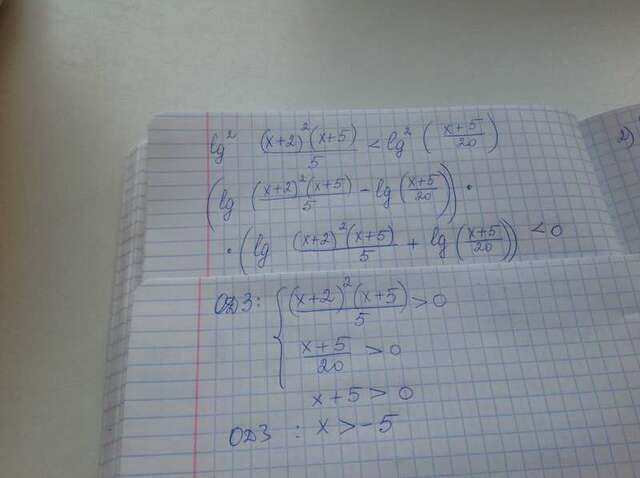 lg² (x+2)²(x+5)/5 < lg² (x+5/20)
(lg ((x+2)²(x+5)/5 - lg (x+5/20)) ·
· (lg (x+2)²(x+5)/5 + lg (x+5/20)) < 0
ОДЗ: { (x+2)²(x+5)/5 > 0
x+5/20 > 0
x+5 > 0
ОДЗ : x > -5
2)